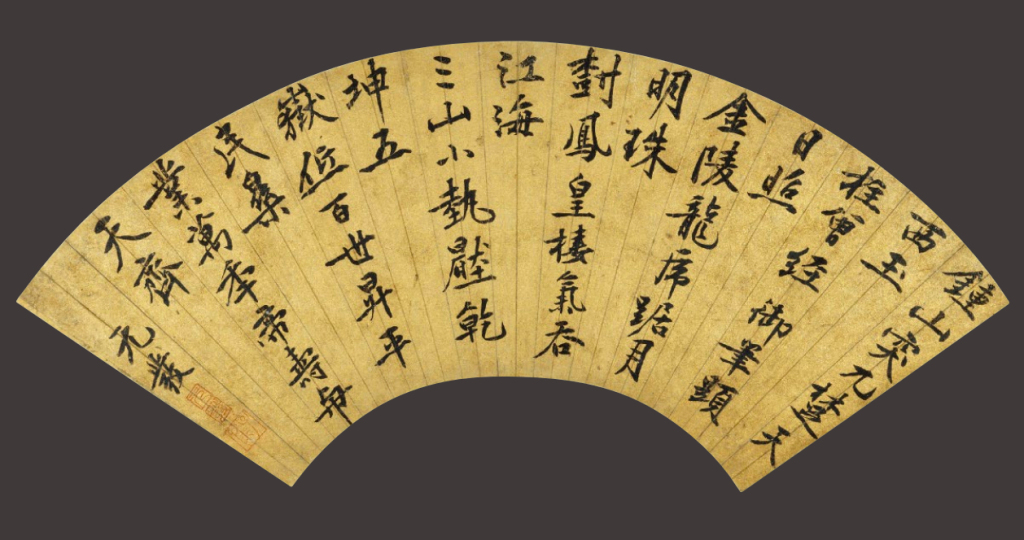 鍾山突兀楚天
西玉
柱曾經御筆題
日照
金陵龍虎踞月
明珠
樹鳳皇棲氣吞
江海
三山小勢壓乾
坤五
嶽低百世昇平
民樂
業萬年帝壽與
天齊
元發